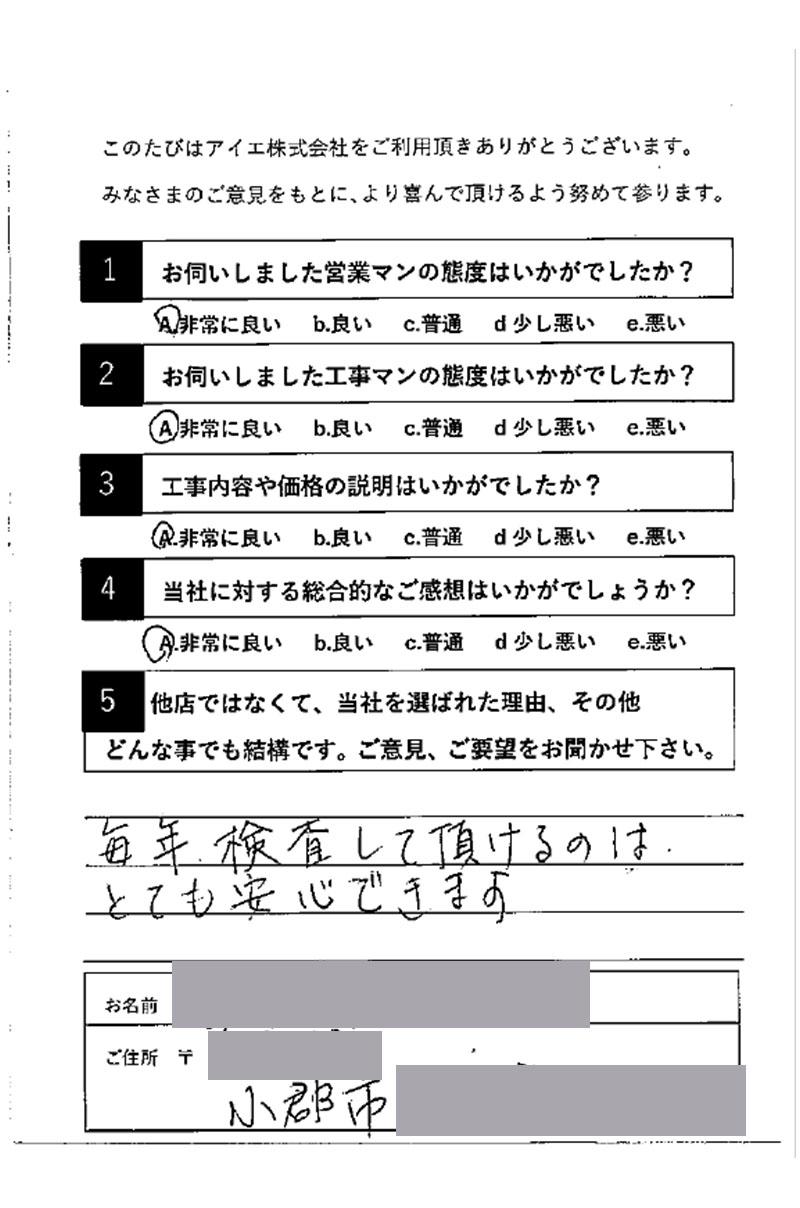 このたびはアイエ株式会社をご利用頂きありがとうございます。
みなさまのご意見をもとに、より喜んで頂けるよう努めて参ります。
1 お伺いしました営業マンの態度はいかがでしたか？
A.非常に良い b.良い c.普通 d 少し悪い e.悪い
2 お伺いしました工事マンの態度はいかがでしたか？
A.非常に良い b.良い c.普通 d 少し悪い e.悪い
3 工事内容や価格の説明はいかがでしたか？
A.非常に良い b.良い c.普通 d 少し悪い e.悪い
4 当社に対する総合的なご感想はいかがでしょうか？
A.非常に良い b.良い c.普通 d 少し悪い e.悪い
5 他店ではなくて、当社を選ばれた理由、その他
どんな事でも結構です。ご意見、ご要望をお聞かせ下さい。
毎年、検査して頂けるのは、
とても安心できます
お名前
ご住所 〒
小郡市